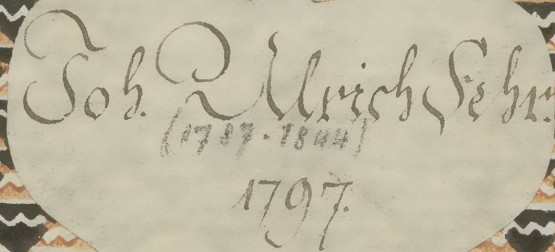 Joh. Ulrich Fehr.
(1787-1844)
1797.